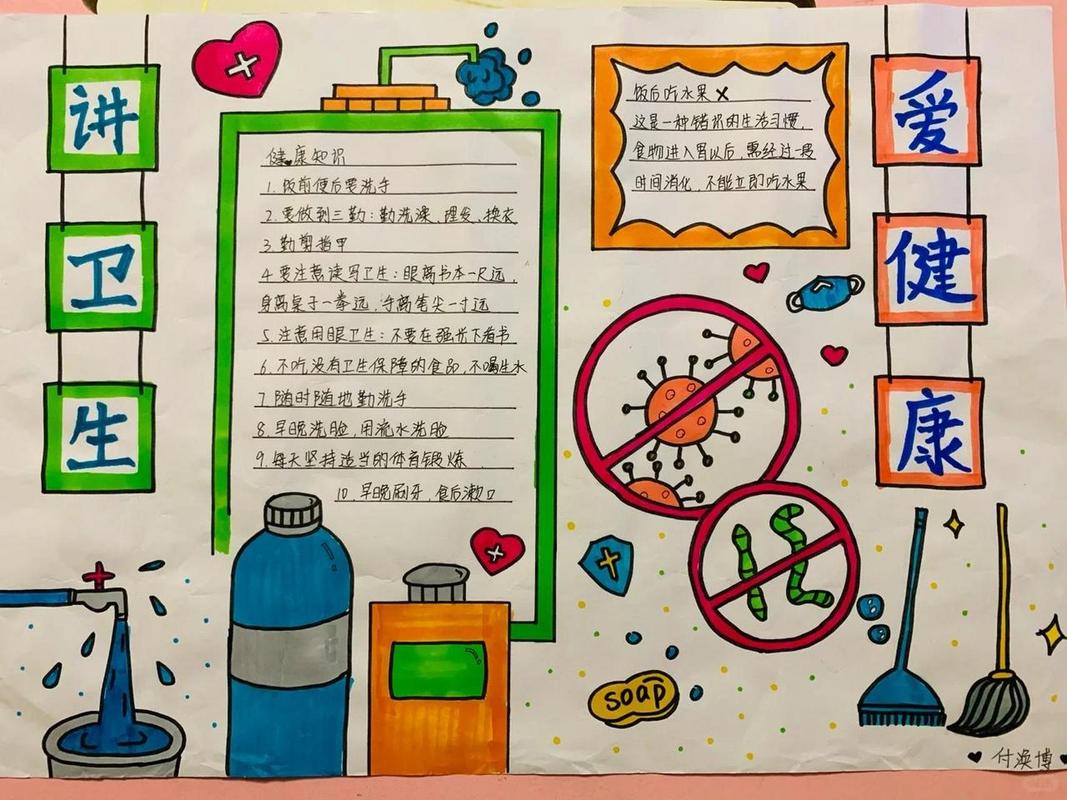 讲
卫
生
健康知识
1. 饭前便后要洗手
2. 要做到三勤:勤洗澡、理发、换衣
3. 勤剪指甲
4. 要注意读写卫生:眼离书本一尺远,
身离桌子一拳远,手离笔尖一寸远
5. 注意用眼卫生:不要在强光下看书
6. 不吃没有卫生保障的食品,不喝生水
7 随时随地勤洗手
8. 早晚洗脸,用流水洗脸
9. 每天坚持适当的体育锻炼
10. 早晚刷牙,食后漱口
饭后吃水果 ×
这是一种错误的生活习惯,
食物进入胃以后,需经过一段
时间消化,不能立即吃水果
爱
健
康
soap
付涣博